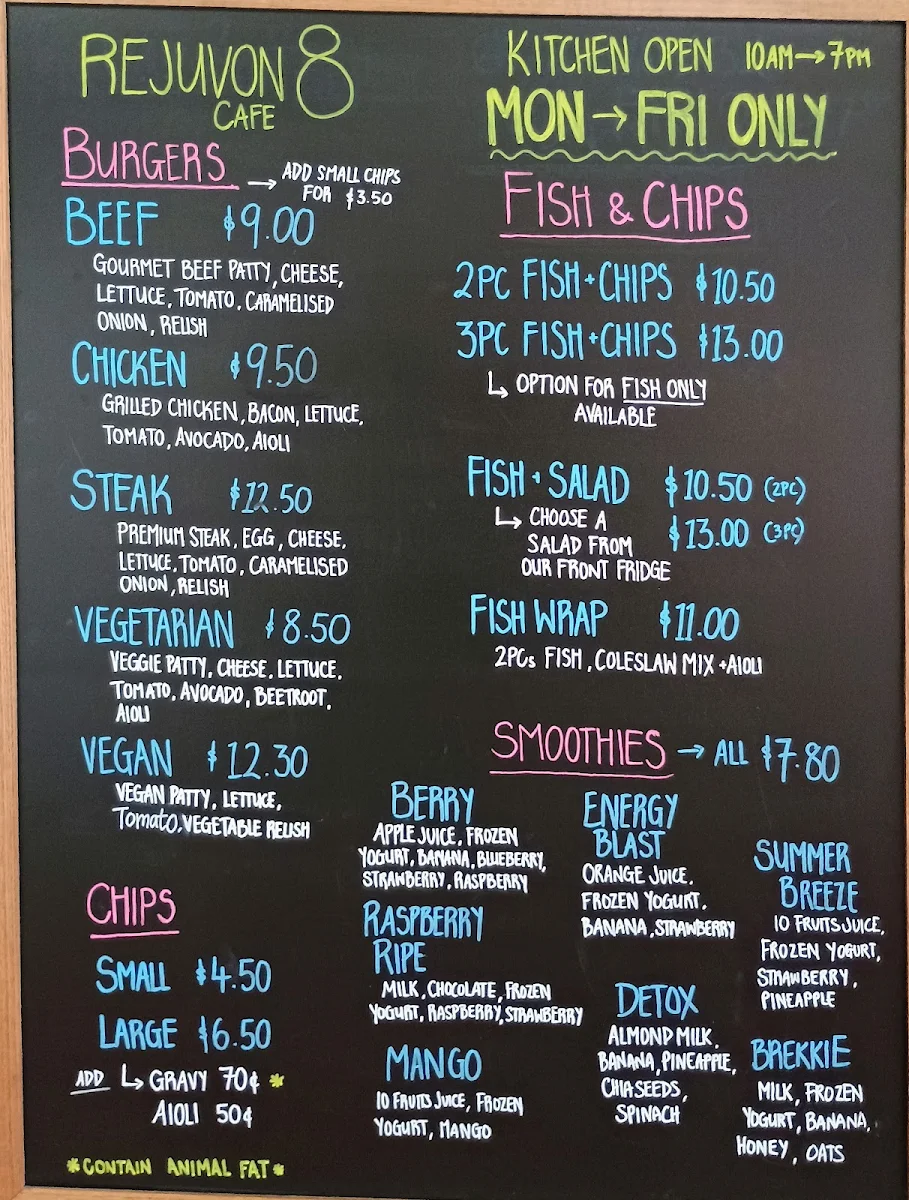 REJUVON 8
CAFE
KITCHEN OPEN 10AM→7PM
MON→FRI ONLY
BURGERS
→ ADD SMALL CHIPS
FOR $3.50
BEEF $9.00
GOURMET BEEF PATTY, CHEESE,
LETTUCE, TOMATO, CARAMELISED
ONION, RELISH
CHICKEN $9.50
GRILLED CHICKEN, BACON, LETTUCE,
TOMATO, AVOCADO, AIOLI
STEAK $12.50
PREMIUM STEAK, EGG, CHEESE,
LETTUCE, TOMATO, CARAMELISED
ONION, RELISH
VEGETARIAN $8.50
VEGGIE PATTY, CHEESE, LETTUCE,
TOMATO, AVOCADO, BEETROOT,
AIOLI
VEGAN $12.30
VEGAN PATTY, LETTUCE,
Tomato, VEGETABLE RELISH
CHIPS
SMALL $4.50
LARGE $6.50
ADD ↳ GRAVY 70¢ *
AIOLI 50¢
*CONTAIN ANIMAL FAT*
FISH & CHIPS
2PC FISH+CHIPS $10.50
3PC FISH+CHIPS $13.00
↳ OPTION FOR FISH ONLY
AVAILABLE
FISH + SALAD $10.50 (2PC)
$13.00 (3PC)
↳ CHOOSE A
SALAD FROM
OUR FRONT FRIDGE
FISH WRAP $11.00
2PCs FISH, COLESLAW MIX + AIOLI
SMOOTHIES → ALL $7.80
BERRY
APPLE JUICE, FROZEN
YOGURT, BANANA, BLUEBERRY,
STRAWBERRY, RASPBERRY
RASPBERRY
RIPE
MILK, CHOCOLATE, FROZEN
YOGURT, RASPBERRY, STRAWBERRY
MANGO
10 FRUITS JUICE, FROZEN
YOGURT, MANGO
ENERGY
BLAST
ORANGE JUICE,
FROZEN YOGURT,
BANANA, STRAWBERRY
DETOX
ALMOND MILK,
BANANA, PINEAPPLE,
CHIA SEEDS,
SPINACH
SUMMER
BREEZE
10 FRUITS JUICE,
FROZEN YOGURT,
STRAWBERRY,
PINEAPPLE
BREKKIE
MILK, FROZEN
YOGURT, BANANA,
HONEY, OATS